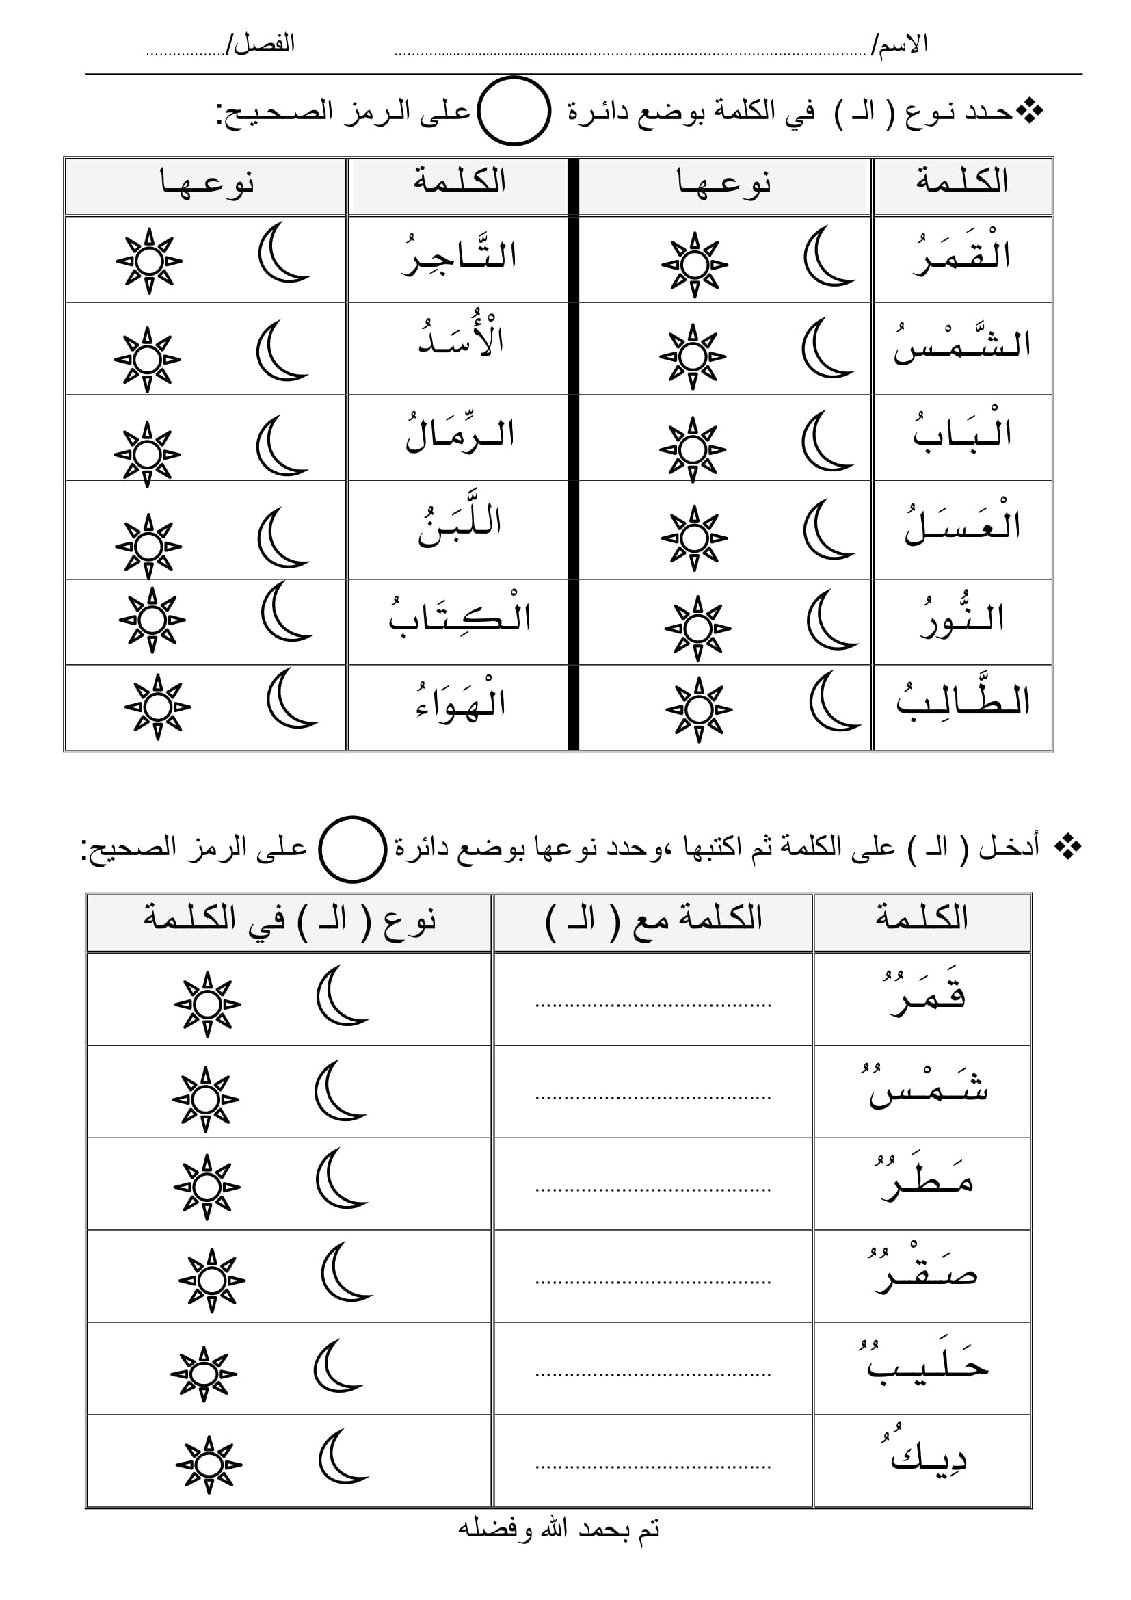 الاسم/ ........................ الفصل/..................
❖حدد نوع ( الـ ) في الكلمة بوضع دائرة على الرمز الصحيح:
الكلمة نوعها الكلمة نوعها
الْقَمَرُ التَّاجِرُ
الشَّمْسُ الْأُسَدُ
الْبَابُ الرِّمَالُ
الْعَسَلُ اللَّبَنُ
النُّورُ الْكِتَابُ
الطَّالِبُ الْهَوَاءُ
❖ أدخل ( الـ ) على الكلمة ثم اكتبها ،وحدد نوعها بوضع دائرة على الرمز الصحيح:
الكلمة الكلمة مع ( الـ ) نوع ( الـ ) في الكلمة
قَمَرُُ ........................
شَمْسُُ ........................
مَطَرُُ ........................
صَقْرُُ ........................
حَلَيبُُ ........................
دِيكُُ ........................
تم بحمد الله وفضله